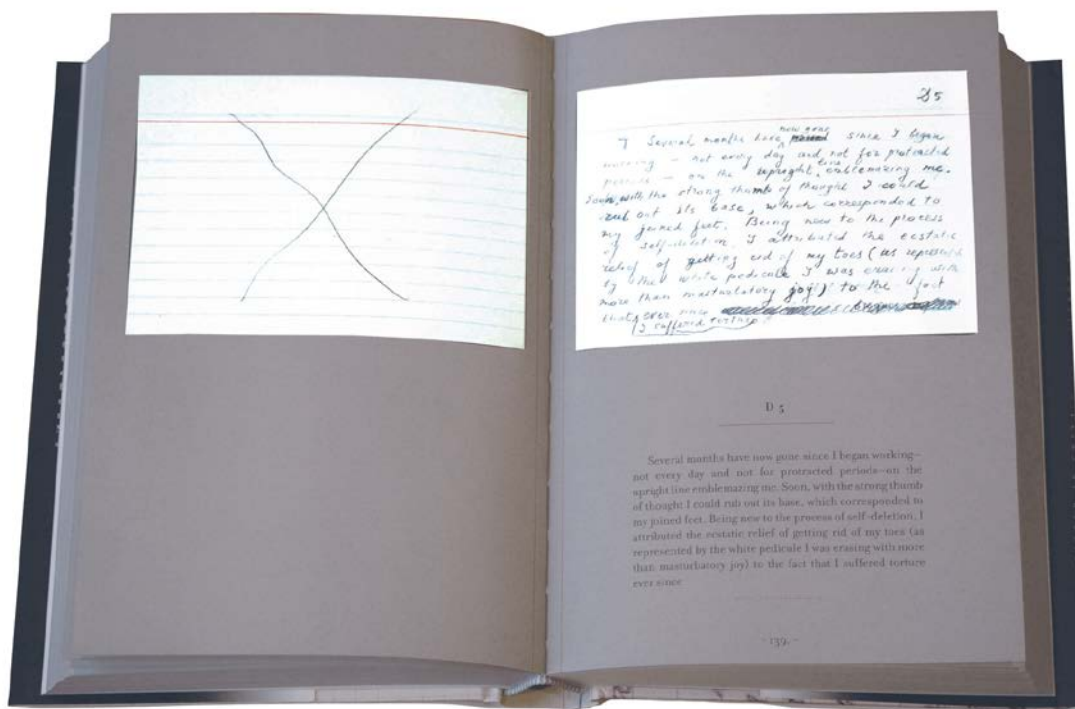 D 5
Several months have now gone since I began
working – not every day and not for protracted
periods – on the upright line emblemazing me.
Soon, with the strong thumb of thought I could
rub out its base, which corresponded to
my joined feet. Being new to the process
of self-deletion, I attributed the ecstatic
relief of getting rid of my toes (as represented
by the white pedicule I was erasing with
more than masturbatory joy) to the fact
that ever since
I suffered torture
D 5
Several months have now gone since I began working–
not every day and not for protracted periods–on the
upright line emblemazing me. Soon, with the strong thumb
of thought I could rub out its base, which corresponded to
my joined feet. Being new to the process of self-deletion, I
attributed the ecstatic relief of getting rid of my toes (as
represented by the white pedicule I was erasing with more
than masturbatory joy) to the fact that I suffered torture
ever since